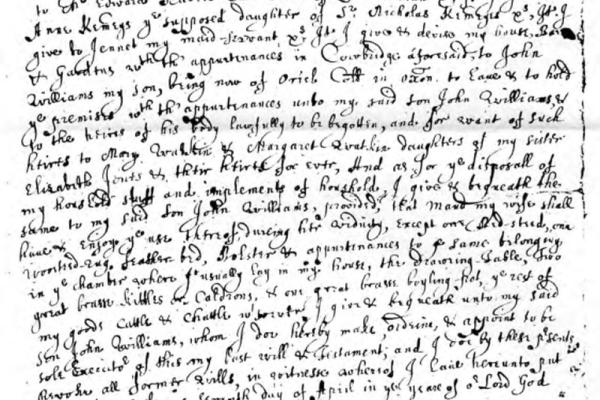 Anne Kemeys yᵉ supposed daughter of Sʳ Nicholas Kemeys xˢ, Itᵗ I
give to Jennet my maid-servant xˢ Itᵗ I give & devise my house, Barn
& Gardens wᵗʰ thappurtenances in Cowbridge aforesaid, to John
Williams my son, being now of Oriel Coll in Oxon. to have & to hold
yᵉ premises wᵗʰ thappurtenances unto my said son John Williams, &
to the heires of his body lawfully to be begotten, and for want of such
heires to Mary Watkin & Margaret Watkin daughters of my sister
Elizabeth & their heires for ever, And as for yᵉ disposall of
my household stuff and implements of household, I give & bequeath the
same to my said son John Williams, provided that Maud my wife shall
have & enjoy yᵉ use thereof during her viduity, Except one Bed-stead, one
Worsted-Rug, feather bed, Bolster & appurtinances to yᵉ same belonging
in yᵉ chamber where I usually lay in my house, the drawing-table, two
great brasse kittles or Caldrons, & one great brass boyling Pot, yᵉ rest of
my goods Cattle & Chattle wᵗsoever, I give & bequeath unto my said
son John Williams, whom I doe hereby make, ordeine, & appoint to be
sole Executoʳ of this my last will & Testament; and I doe by these pˢents
Revoke all former wills, in witness whereof I have hereunto put
day of April in yᵉ yeare of oʳ Lord God